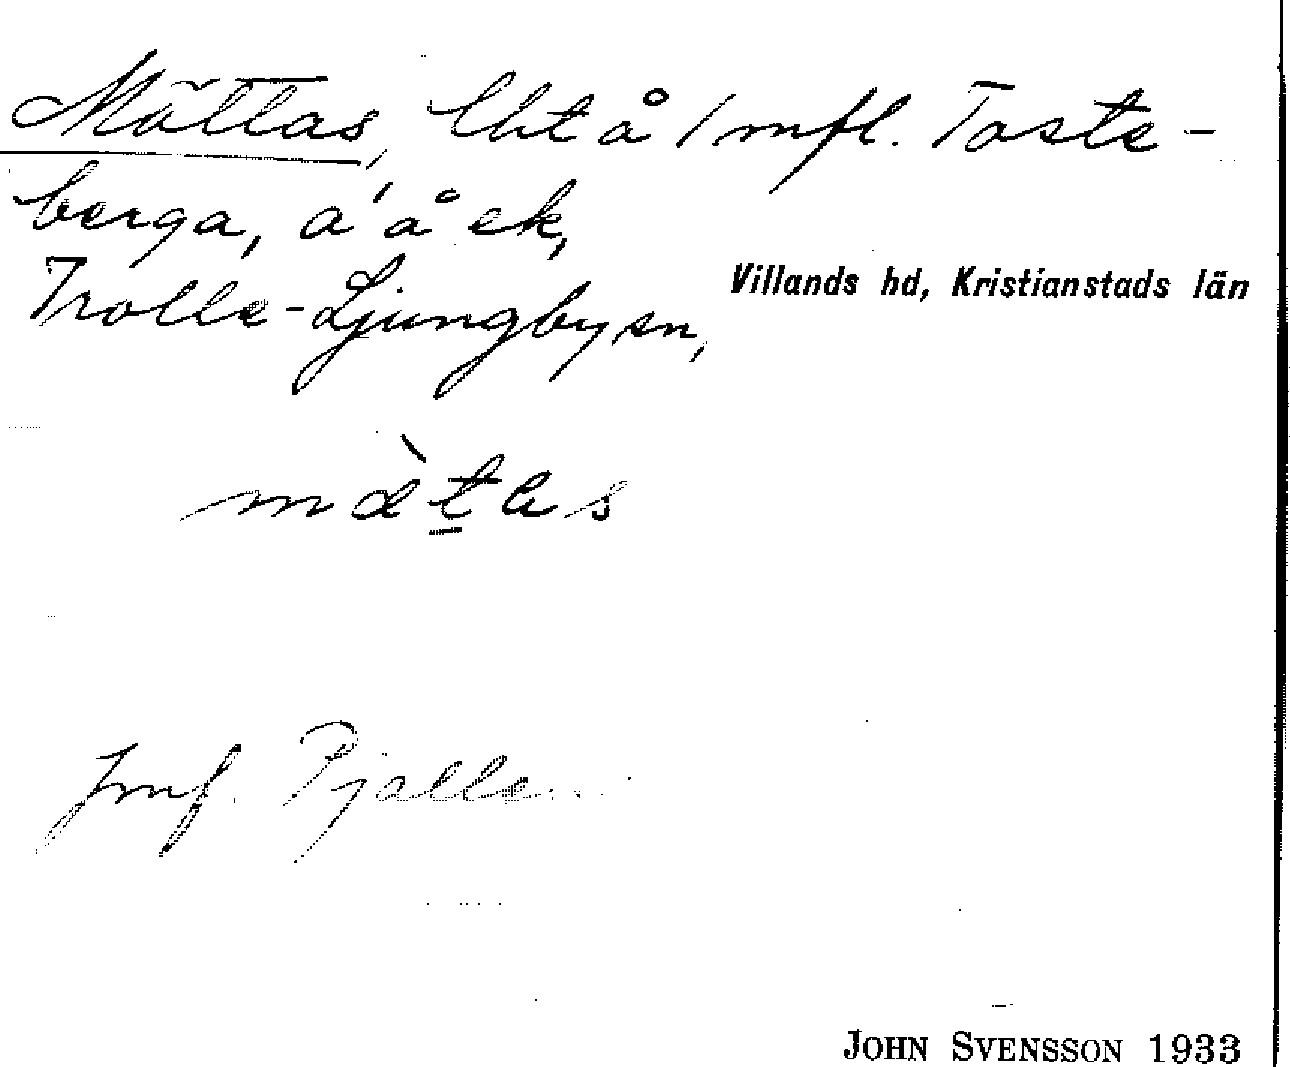 Mattas, lht å 1 mfl. Toste-
berga, a' å ek,
Trolle-Ljungby sn,
Villands hd, Kristianstads län
Jmf. Pjalle...
JOHN SVENSSON 1933